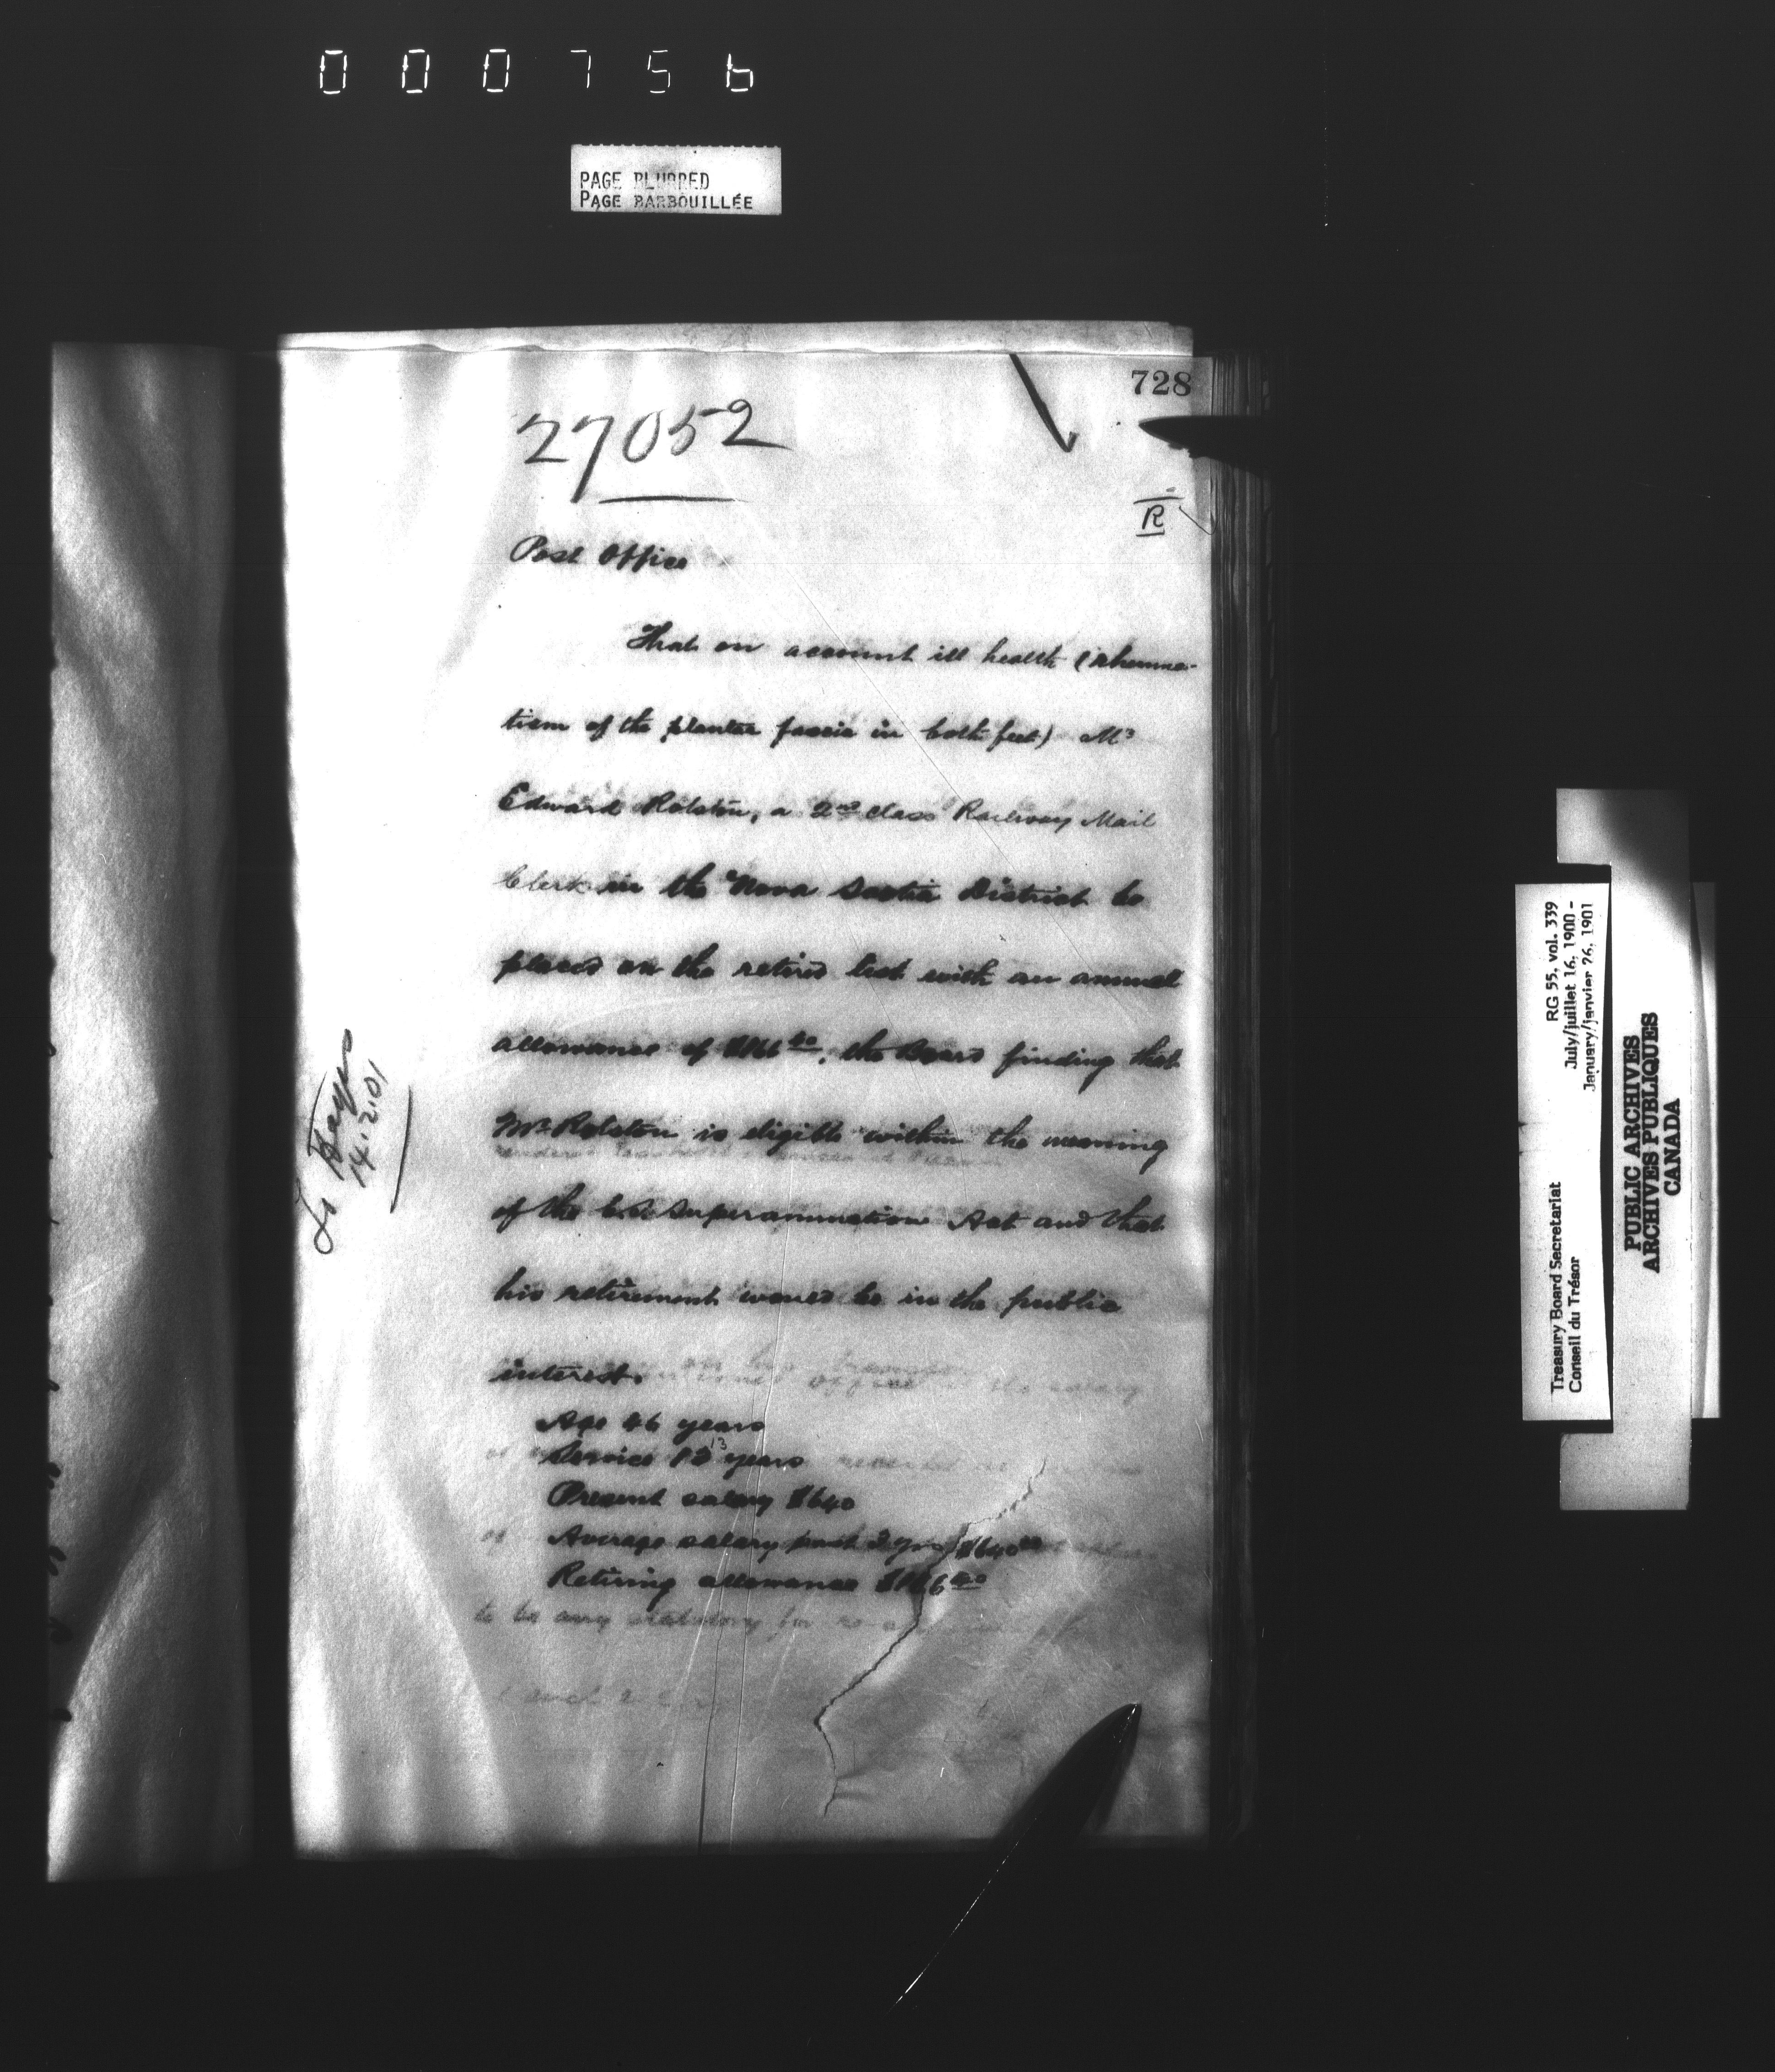 000756
PAGE BLURRED
PAGE BARBOUILLÉE
728
27052
R
Post Office
That on account ill health (rheuma-
tism of the plantar fascia in both feet) Mr
Edward Rolston, a 2nd class Railway Mail
Clerk in the Nova Scotia District be
placed on the retired list with an annual
allowance of $166.40, the Board finding that
Mr. Rolston is eligible within the meaning
of the C.S. Superannuation Act and that
his retirement would be in the public
interest.
Age 46 years
Service 13 years
Present salary $640
Average salary past 3 yrs $640.00
Retiring allowance $166.40
to be any statutory for
14.2.01
RG 55, vol. 339
July/juillet 16, 1900 -
January/janvier 26, 1901
Treasury Board Secretariat
Conseil du Trésor
PUBLIC ARCHIVES
ARCHIVES PUBLIQUES
CANADA